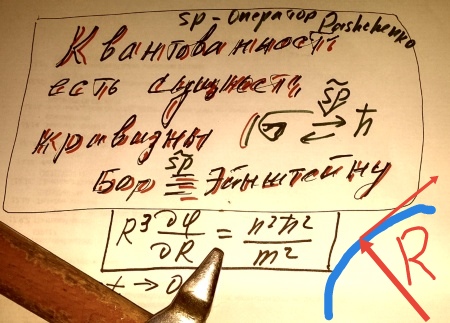 sp - Оператор Pashchenko
Квантованность
есть сущность
кривизны s̃p ⇄ ħ
Бор s̃p ≡ Эйнштейну
R³ ∂φ/∂R = n²ħ²/m²
t → 0
R